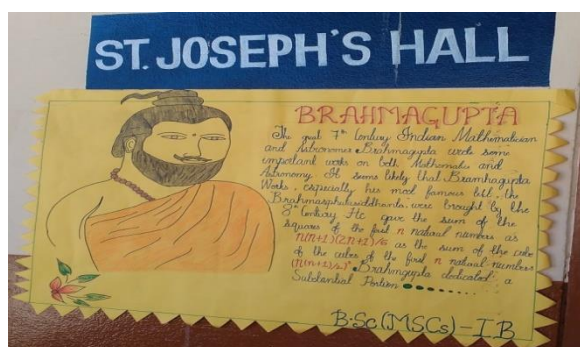 ST. JOSEPH'S HALL
BRAHMAGUPTA
The great 7th Century Indian Mathematician
and Astronomer Brahmagupta wrote some
important works on both Mathematics and
Astronomy. It seems likely that Bramhagupta
Works, especially his most famous the
"Brahmasphutasiddhanta" were brought by the
8th Century He gave the sum of the
squares of the first n natural numbers as
n(n+1)(2n+1)/6 as the sum of the cube
of the cubes of the first n natural numbers
(n(n+1)/2)² Brahmgupta dedicated a
Substantial Portion
B.Sc(MSCs)-I.B